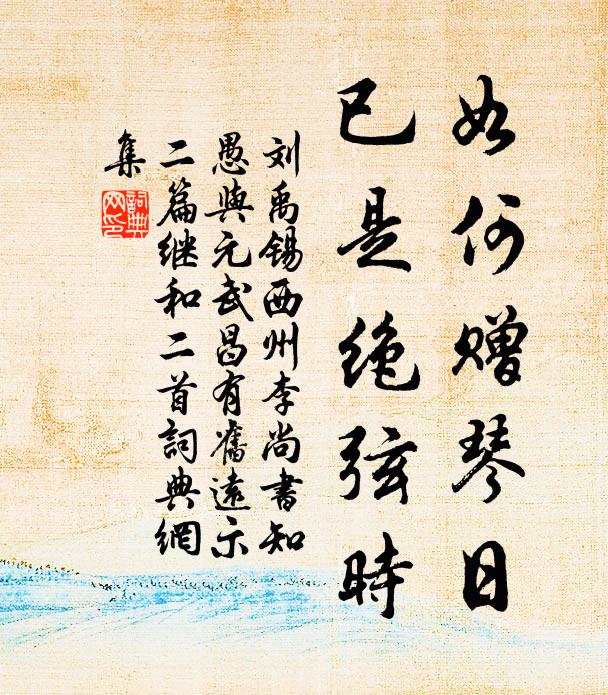 如何赠琴日
已是绝弦時
刘禹锡西州李尚書知
愚與元武昌有舊遠示
二篇继和二首詞典網
集
詞典网印